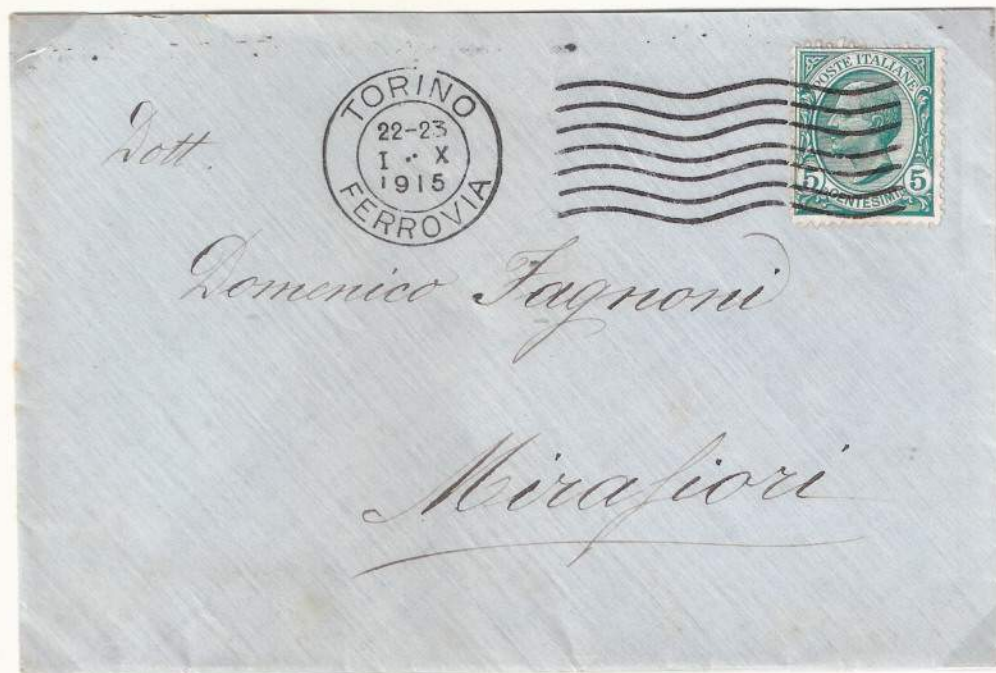 TORINO
22-23
I · X
1915
FERROVIA
POSTE ITALIANE
5 CENTESIMI 5
Dott.
Domenico Fagnoni
Mirafiori